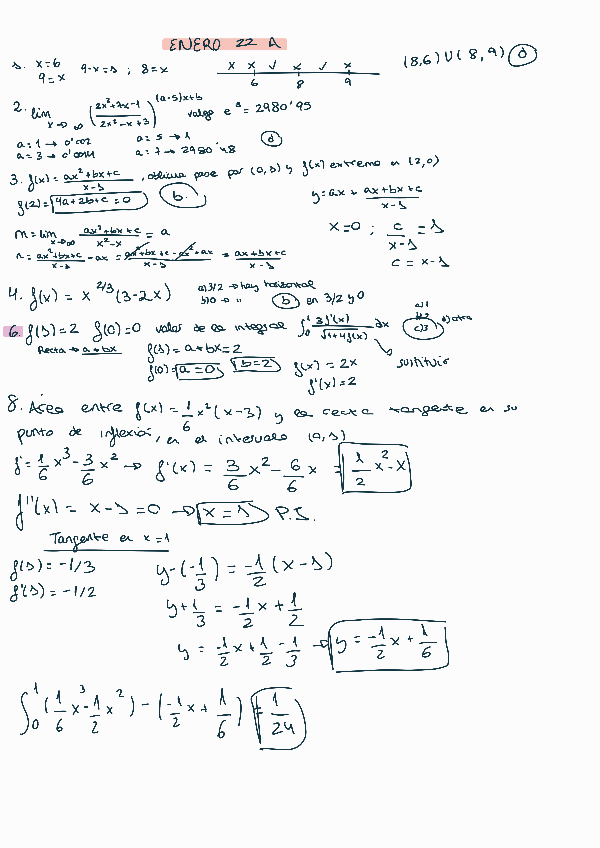 ENERO 22 A
1. x=6 9-x=1 ; 8=x x x ✓ x ✓ x (8,6) U (8,9) d
9=x 6 8 9
2. lim x→∞ (2x²+7x-1 / 2x²-x+3)^((a-5)x+b) valga e⁸ = 2980'95
a=1 → 0'002 a=5 → 1 d
a=3 → a=7 → 2980'48
3. f(x) = ax²+bx+c / x-1 , oblicua pase por (0,1) y f(x) extremo en (2,0)
f(2) = 4a+2b+c=0 b. y = ax + ax+bx+c / x-1
m = lim x→∞ ax²+bx+c / x²-x = a x=0 ; c / x-1 = 1
n = ax²+bx+c / x-1 - ax = ax²+bx+c-ax²+ax / x-1 = ax+bx+c / x-1 c = x-1
4. f(x) = x^(2/3) (3-2x) a) 3/2 → hay horizontal
b) 0 → " b en 3/2 y 0
6. f(1)=2 f(0)=0 valor de la integral ∫₀¹ 3f'(x) / √(1+4f(x)) dx c)3 d) otra
Recta → a+bx f(1) = a+bx = 2 sustituir
f(0) = a=0 b=2 f(x) = 2x
f'(x) = 2
8. Área entre f(x) = 1/6 x² (x-3) y la recta tangente en su
punto de inflexión, en el intervalo (0,1)
f = 1/6 x³ - 3/6 x² → f'(x) = 3/6 x² - 6/6 x = 1/2 x² - x
f''(x) = x-1 = 0 → x=1 P.I.
Tangente en x=1
f(1) = -1/3 y-(-1/3) = -1/2 (x-1)
f'(1) = -1/2 y + 1/3 = -1/2 x + 1/2
y = -1/2 x + 1/2 - 1/3 → y = -1/2 x + 1/6
∫₀¹ (1/6 x³ - 1/2 x²) - (-1/2 x + 1/6) = 1/24